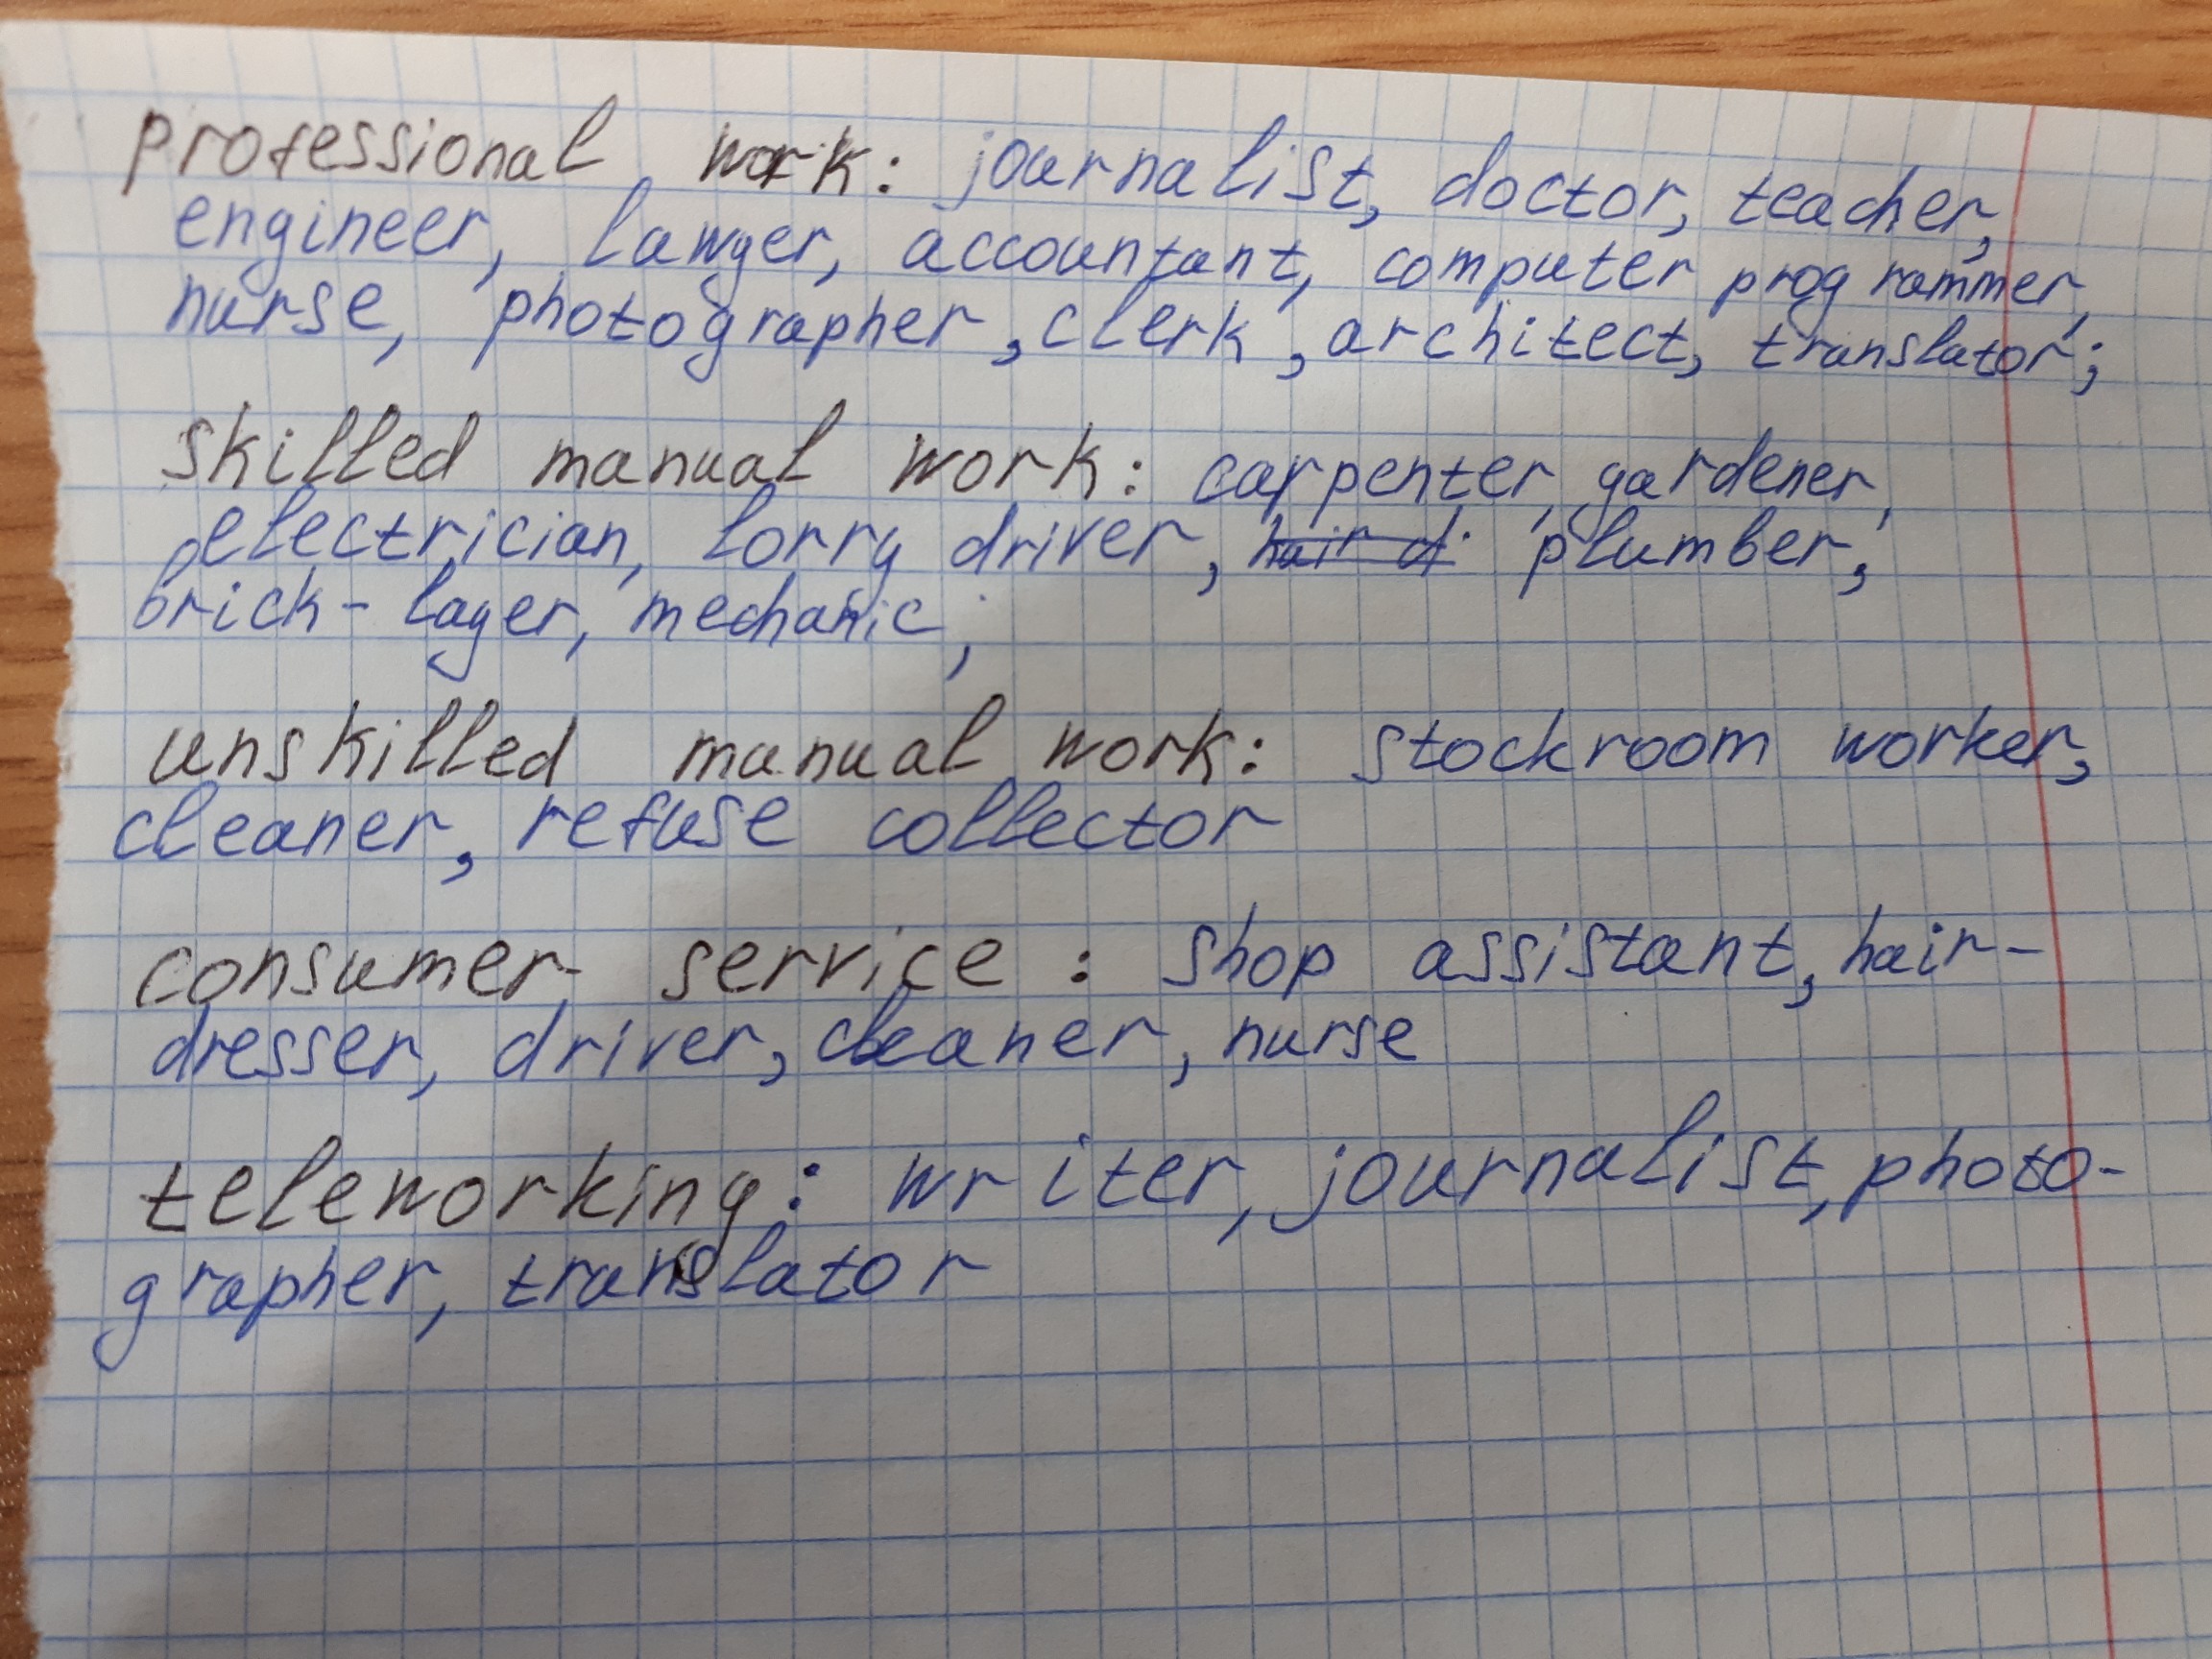 professional work: journalist, doctor, teacher,
engineer, lawyer, accountant, computer programmer,
nurse, photographer, clerk, architect, translator;
skilled manual work: carpenter, gardener,
electrician, lorry driver, hair d plumber,
brick-layer, mechanic,
unskilled manual work: stockroom worker,
cleaner, refuse collector
consumer service: shop assistant, hair-
dresser, driver, cleaner, nurse
teleworking: writer, journalist, photo-
grapher, translator